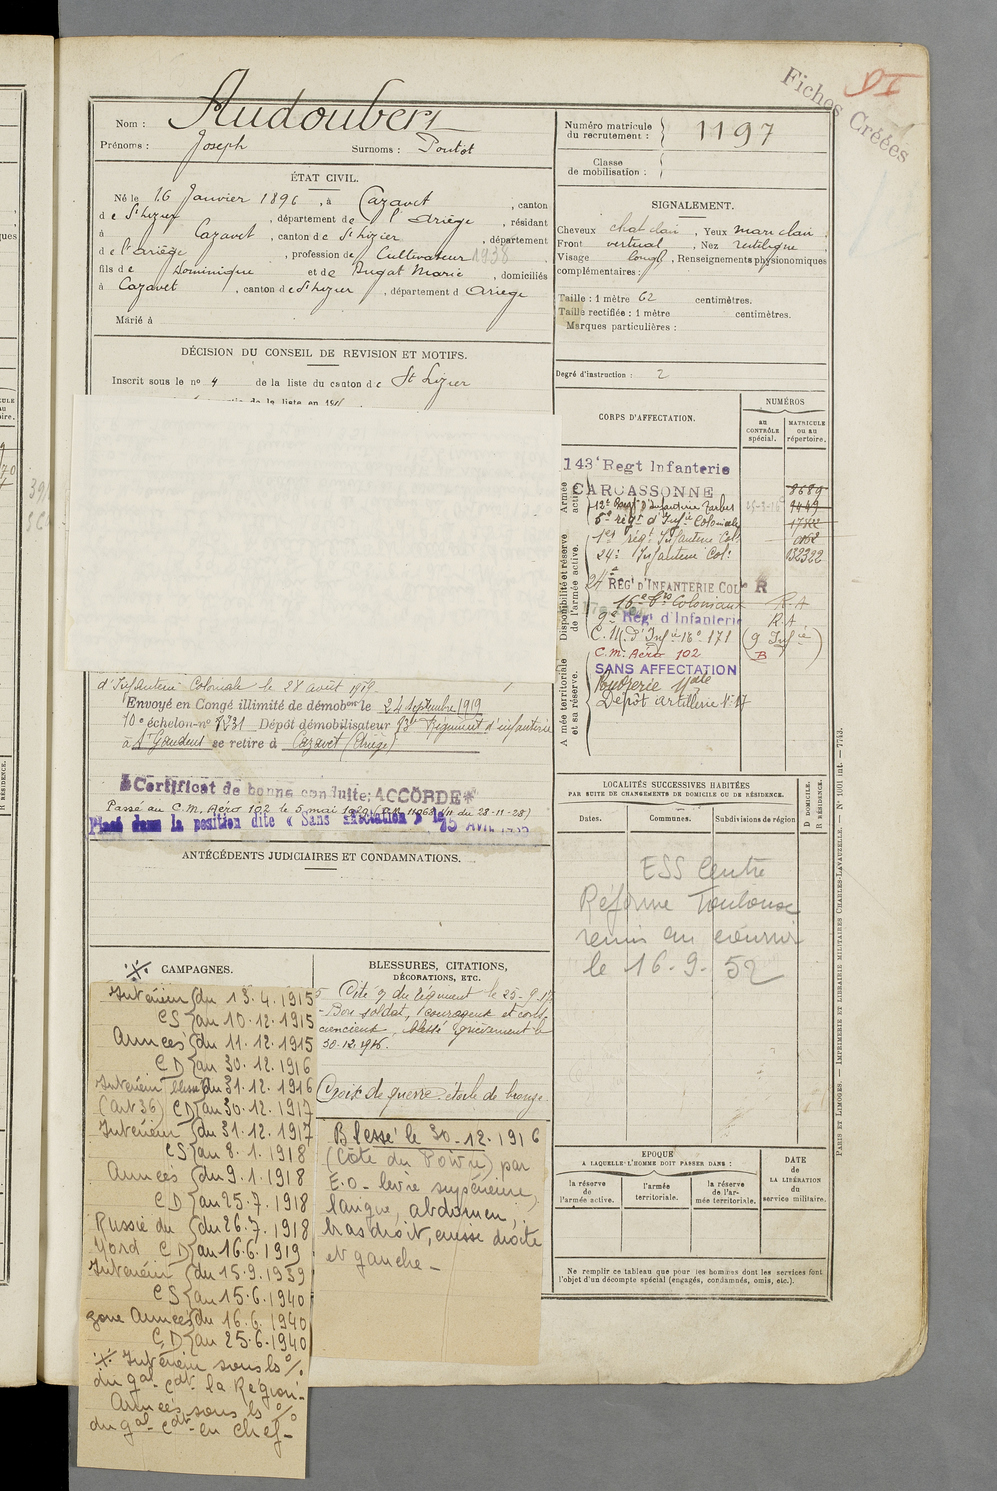 Fiches Créées
Nom : Audoubert
Prénoms : Joseph Surnoms : Poutot
Numéro matricule du recrutement : 1197
Classe de mobilisation :
ÉTAT CIVIL.
Né le 16 Janvier 1896, à Cazavet, canton
de St Lizier, département de l'Ariège, résidant
à Cazavet, canton de St Lizier, département
de l'Ariège, profession de Cultivateur 1938
fils de Dominique et de Dugat Marie, domiciliés
à Cazavet, canton de St Lizier, département d Ariège
Marié à
SIGNALEMENT.
Cheveux chat clair, Yeux mar clair
Front vertical, Nez rectiligne
Visage long, Renseignements physionomiques
complémentaires :
Taille : 1 mètre 62 centimètres.
Taille rectifiée : 1 mètre centimètres.
Marques particulières :
Degré d'instruction : 2
DÉCISION DU CONSEIL DE REVISION ET MOTIFS.
Inscrit sous le no 4 de la liste du canton de St Lizier
CORPS D'AFFECTATION.
NUMÉROS
au CONTRÔLE spécial.
MATRICULE ou au répertoire.
Armée active.
143e Regt Infanterie
CARCASSONNE 8689
12e Regt d'Infanterie Tarbes 9449
5e régt d'Infie Coloniale
1er régt Infanterie Col.
Disponibilité et réserve de l'armée active.
24e Infanterie Col. 132322
24e REGt D'INFANTERIE COLe R
16e Bon Coloniaux R.A
9e Régt d'Infanterie R.A
C.M. d'Infie 16e 171 (9 Infie)
C.M. Aéro 102 B
Armée territoriale et sa réserve.
SANS AFFECTATION
Poudrerie Nale
Dépôt artillerie No 17
d'Infanterie Coloniale le 28 août 1919
Envoyé en Congé illimité de démobon le 24 septembre 1919
10e échelon - no Dépôt démobilisateur 83e Régiment d'infanterie
à St Gaudens se retire à Cazavet (Ariège)
Certificat de bonne conduite; ACCORDÉ
Passé au C.M. Aéro 102 le 5 mai 1929 (D.M. 11068 1/11 du 28-11-28)
Placé dans la position dite « Sans affectation » le 15 AVR
ANTÉCÉDENTS JUDICIAIRES ET CONDAMNATIONS.
LOCALITÉS SUCCESSIVES HABITÉES
PAR SUITE DE CHANGEMENTS DE DOMICILE OU DE RÉSIDENCE.
Dates. Communes. Subdivisions de région
D DOMICILE. R RÉSIDENCE.
ESS Centre
Réforme Toulouse
remis au courrier
le 16-9-52
CAMPAGNES.
Intérieur {du 13.4.1915
CS {au 10.12.1915
Armées {du 11.12.1915
CD {au 30.12.1916
Intérieur blessé {du 31.12.1916
(art 36) CD {au 30.12.1917
Intérieur {du 31.12.1917
CS {au 8.1.1918
Armées {du 9.1.1918
CD {au 25.7.1918
Russie du {du 26.7.1918
Nord CD {au 16.6.1919
Intérieur {du 15.9.1939
CS {au 15.6.1940
zone Armées {du 16.6.1940
CD {au 25.6.1940
Intérieur sous ls o/.
du gal cdt la Région -
Armées sous ls o/o
du gal - cdt - en chef -
BLESSURES, CITATIONS,
DÉCORATIONS, ETC.
Cité à du régiment le 25-9-17
- Bon soldat, courageux et cons-
ciencieux, blessé grièvement le
30.12.1916.
Croix de guerre étoile de bronze
Blessé le 30-12-1916
(Côte du Poivre) par
E.O - lèvre supérieure,
langue, abdomen,
bras droit, cuisse droite
et gauche -
ÉPOQUE
A LAQUELLE L'HOMME DOIT PASSER DANS :
la réserve de l'armée active.
l'armée territoriale.
la réserve de l'armée territoriale.
DATE de LA LIBÉRATION du service militaire.
Ne remplir ce tableau que pour les hommes dont les services font
l'objet d'un décompte spécial (engagés, condamnés, omis, etc.).
PARIS ET LIMOGES. — IMPRIMERIE ET LIBRAIRIE MILITAIRES CHARLES-LAVAUZELLE. — No 1001 int. — 7713.